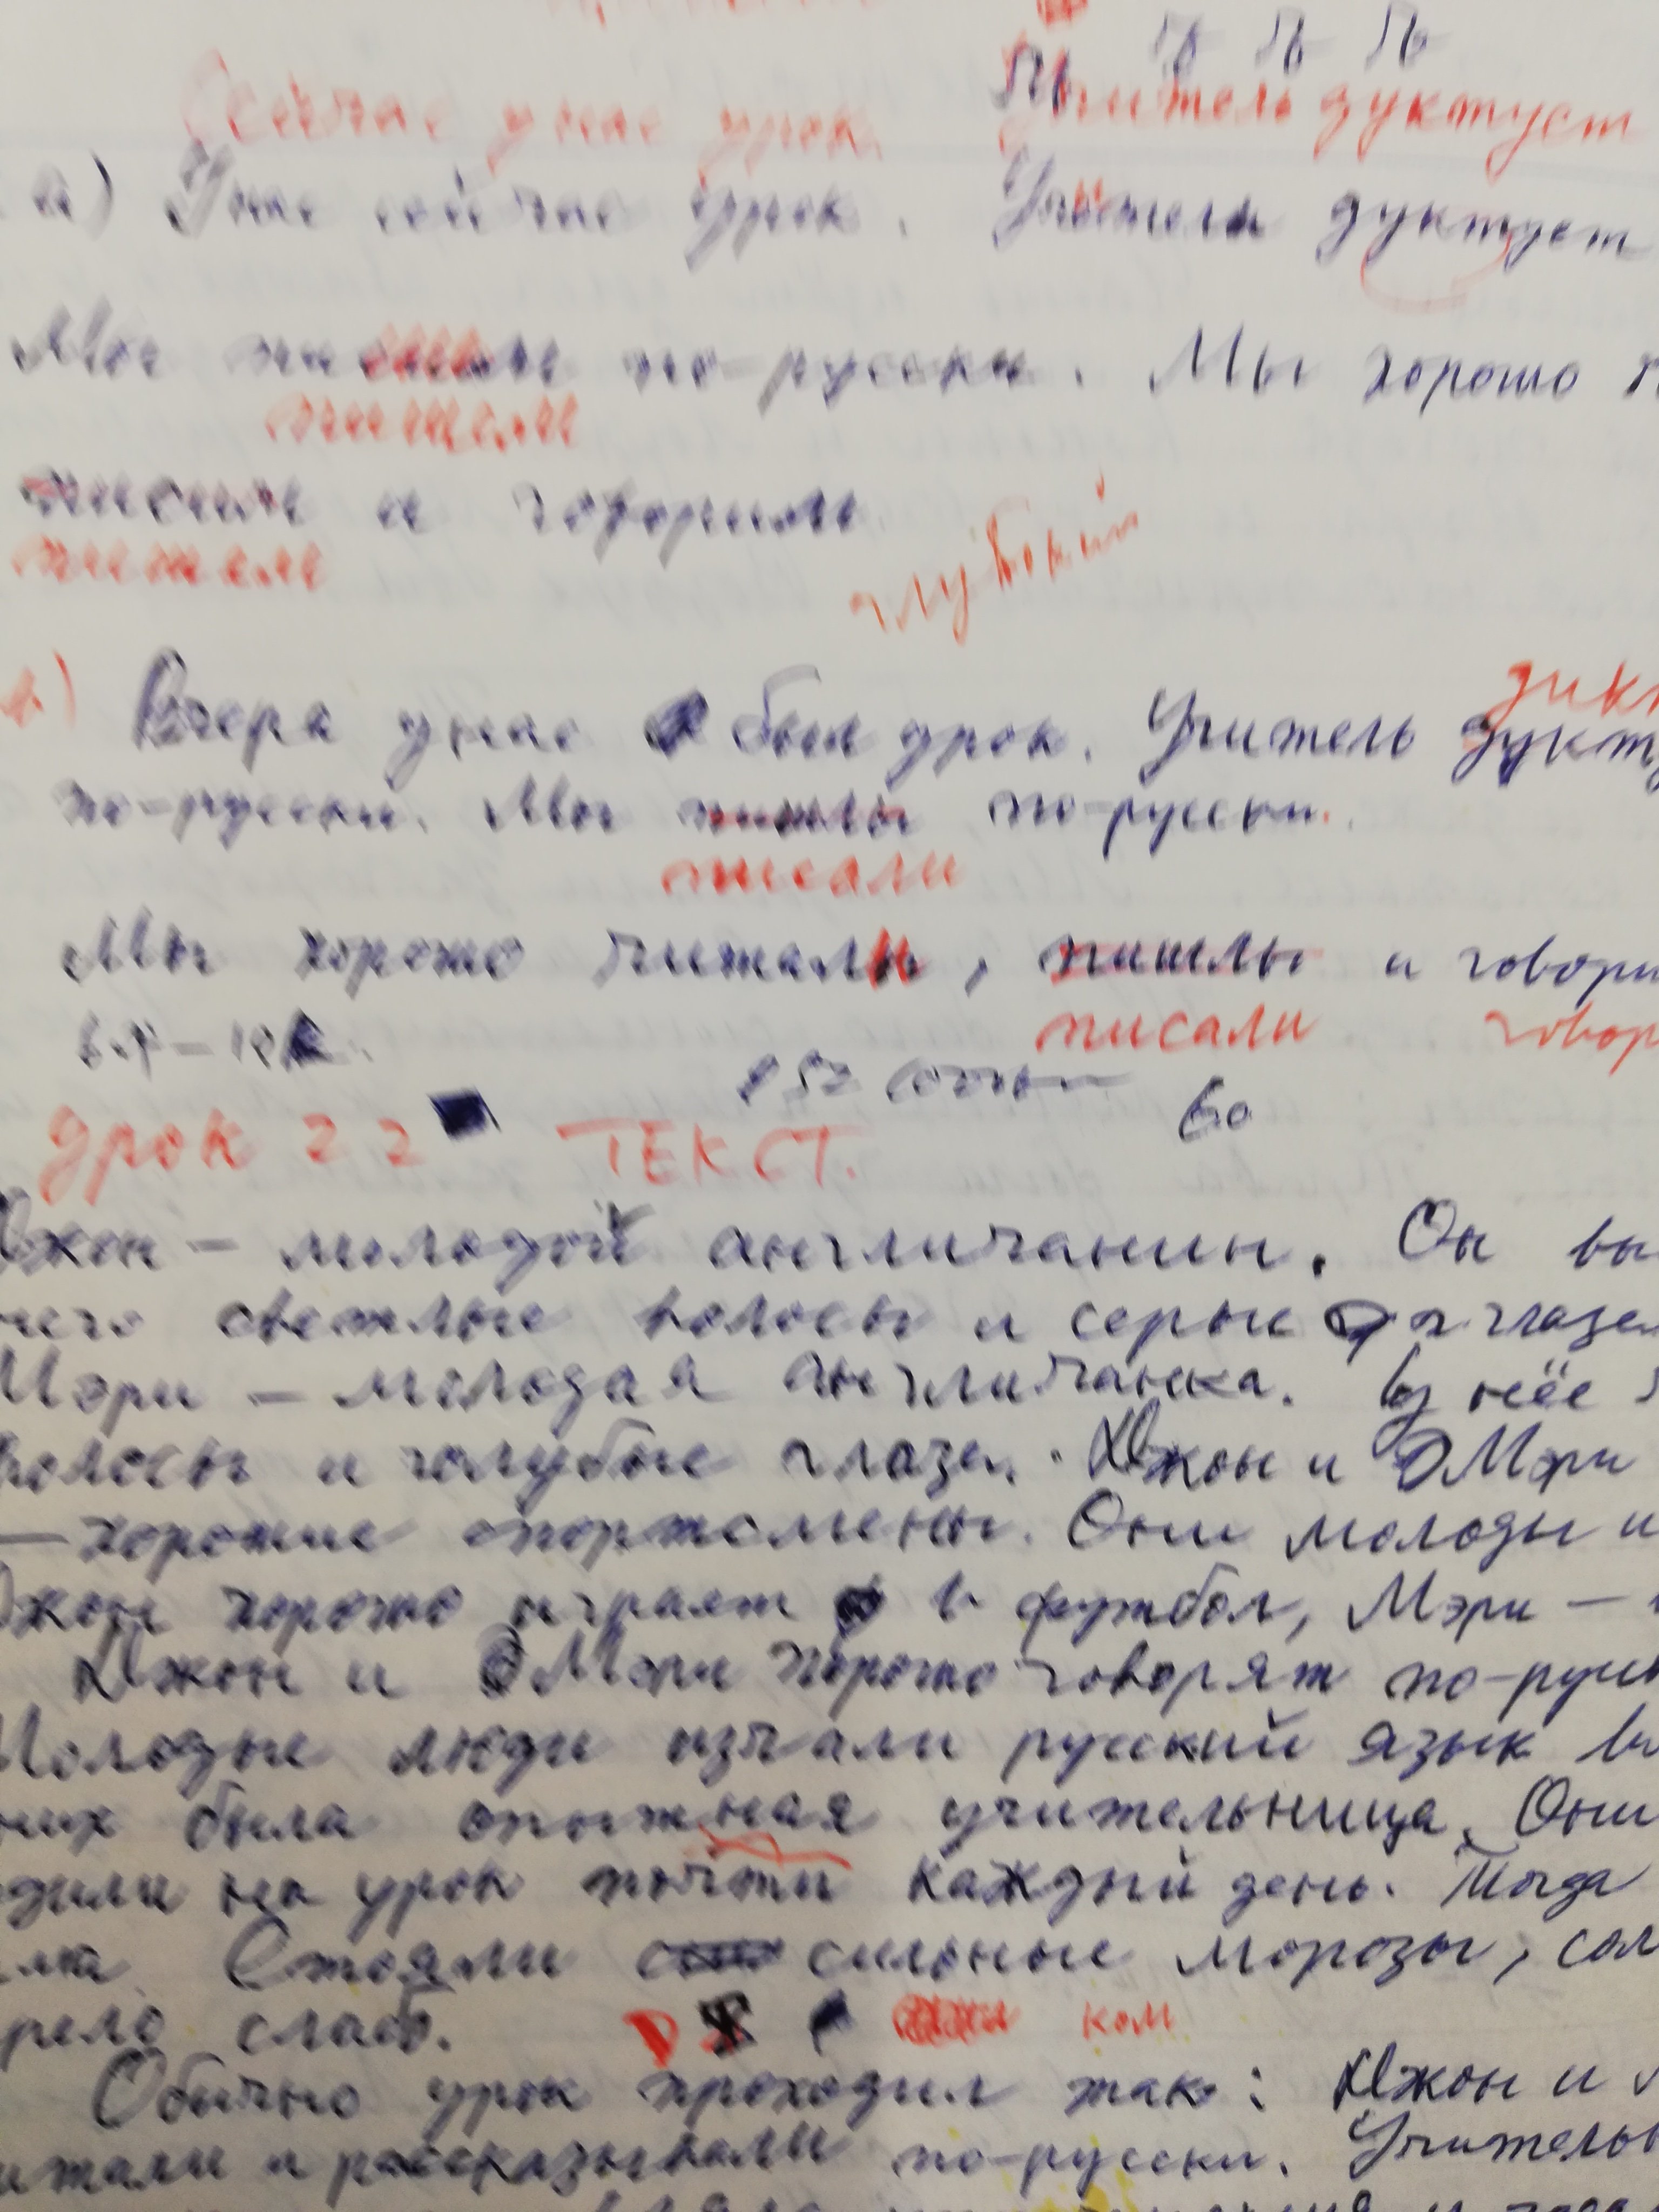 Сейчас у нас урок. Учитель дуктует
а) У нас сейчас урок. Учитель дуктует
Мы по-русски. Мы хорошо
пишем
и говорим
пишем
глубокий
в) Вчера у нас был урок. Учитель
по-русски. Мы пишлы по-русски.
писали
Мы хорошо читали, пишлы и говори
писали говор
урок 22 ТЕКСТ.
Джон – молодой англичанин. Он вы
него светлые волосы и серые глаза
Мэри – молодая англичанка. У неё
волосы и голубые глаза. Джон и Мэри
– хорошие спортсмены. Они молоды и
Джон хорошо играет в футбол, Мэри –
Джон и Мэри хорошо говорят по-русс
Молодые люди изчали русский язык
них была опытная учительница. Они
дили на урок почти каждый день. Тогда
има. Стояли сильные морозы, сол
рело слабо.
ком
Обычно урок проходил так: Джон и М
итали и рассказывали по-русски. Учитель